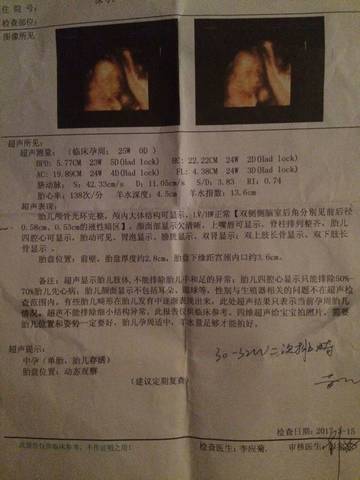 住 院 号:
检查部位:
图像所见
超声所见:
超声测量: (临床孕周: 25W 0D )
BPD: 5.77CM 23W 5D(Had lock) HC: 22.22CM 24W 2D(Had lock)
AC: 19.89CM 24W 3D(Had lock) FL: 4.38CM 24W 3D(Had lock)
脐动脉: S: 42.33cm/s D: 11.05cm/s S/D: 3.83 RI: 0.74
胎心率: 138次/分 羊水深度: 4.5cm 羊水指数: 13.6cm
超声表现:
胎儿颅骨光环完整,颅内大体结构可显示,LV/HW正常【双侧侧脑室后角分别见前后径
0.58cm、0.53cm的液性暗区】。颜面部显示欠清晰,上嘴唇可显示,脊柱排列整齐。胎儿
四腔心可显示,胎动可见。胃泡显示,膀胱显示,双肾显示;双上肢长骨显示、双下肢长
骨显示。
胎盘位置:前壁,胎盘厚度约2.8cm,胎盘下缘距宫颈内口约3.6cm。
备注:超声显示胎儿肢体,不能排除胎儿手和足的异常;胎儿四腔心显示只能排除50%-
70%胎儿先心病;胎儿颜面显示不包括耳朵、眼球等。性别与生殖器相关的问题不在超声检
查范围内。有些胎儿畸形在胎儿发育中逐渐表现出来,此处超声结果只表示当前孕周胎儿
情况。超声不能排除细小结构异常,此报告仅供临床参考。四维超声给宝宝拍照片,需要
胎儿位置和姿势一定要好,胎儿孕周适中,羊水量足够才能拍好。
超声提示:
中孕(单胎、胎儿存活)
胎盘位置:动态观察
(建议定期复查)
30-32W二次排畸
检查日期:2017-
-15
此报告仅供临床参考,不作证明之用!
检查医生:李应菊
审核医生: